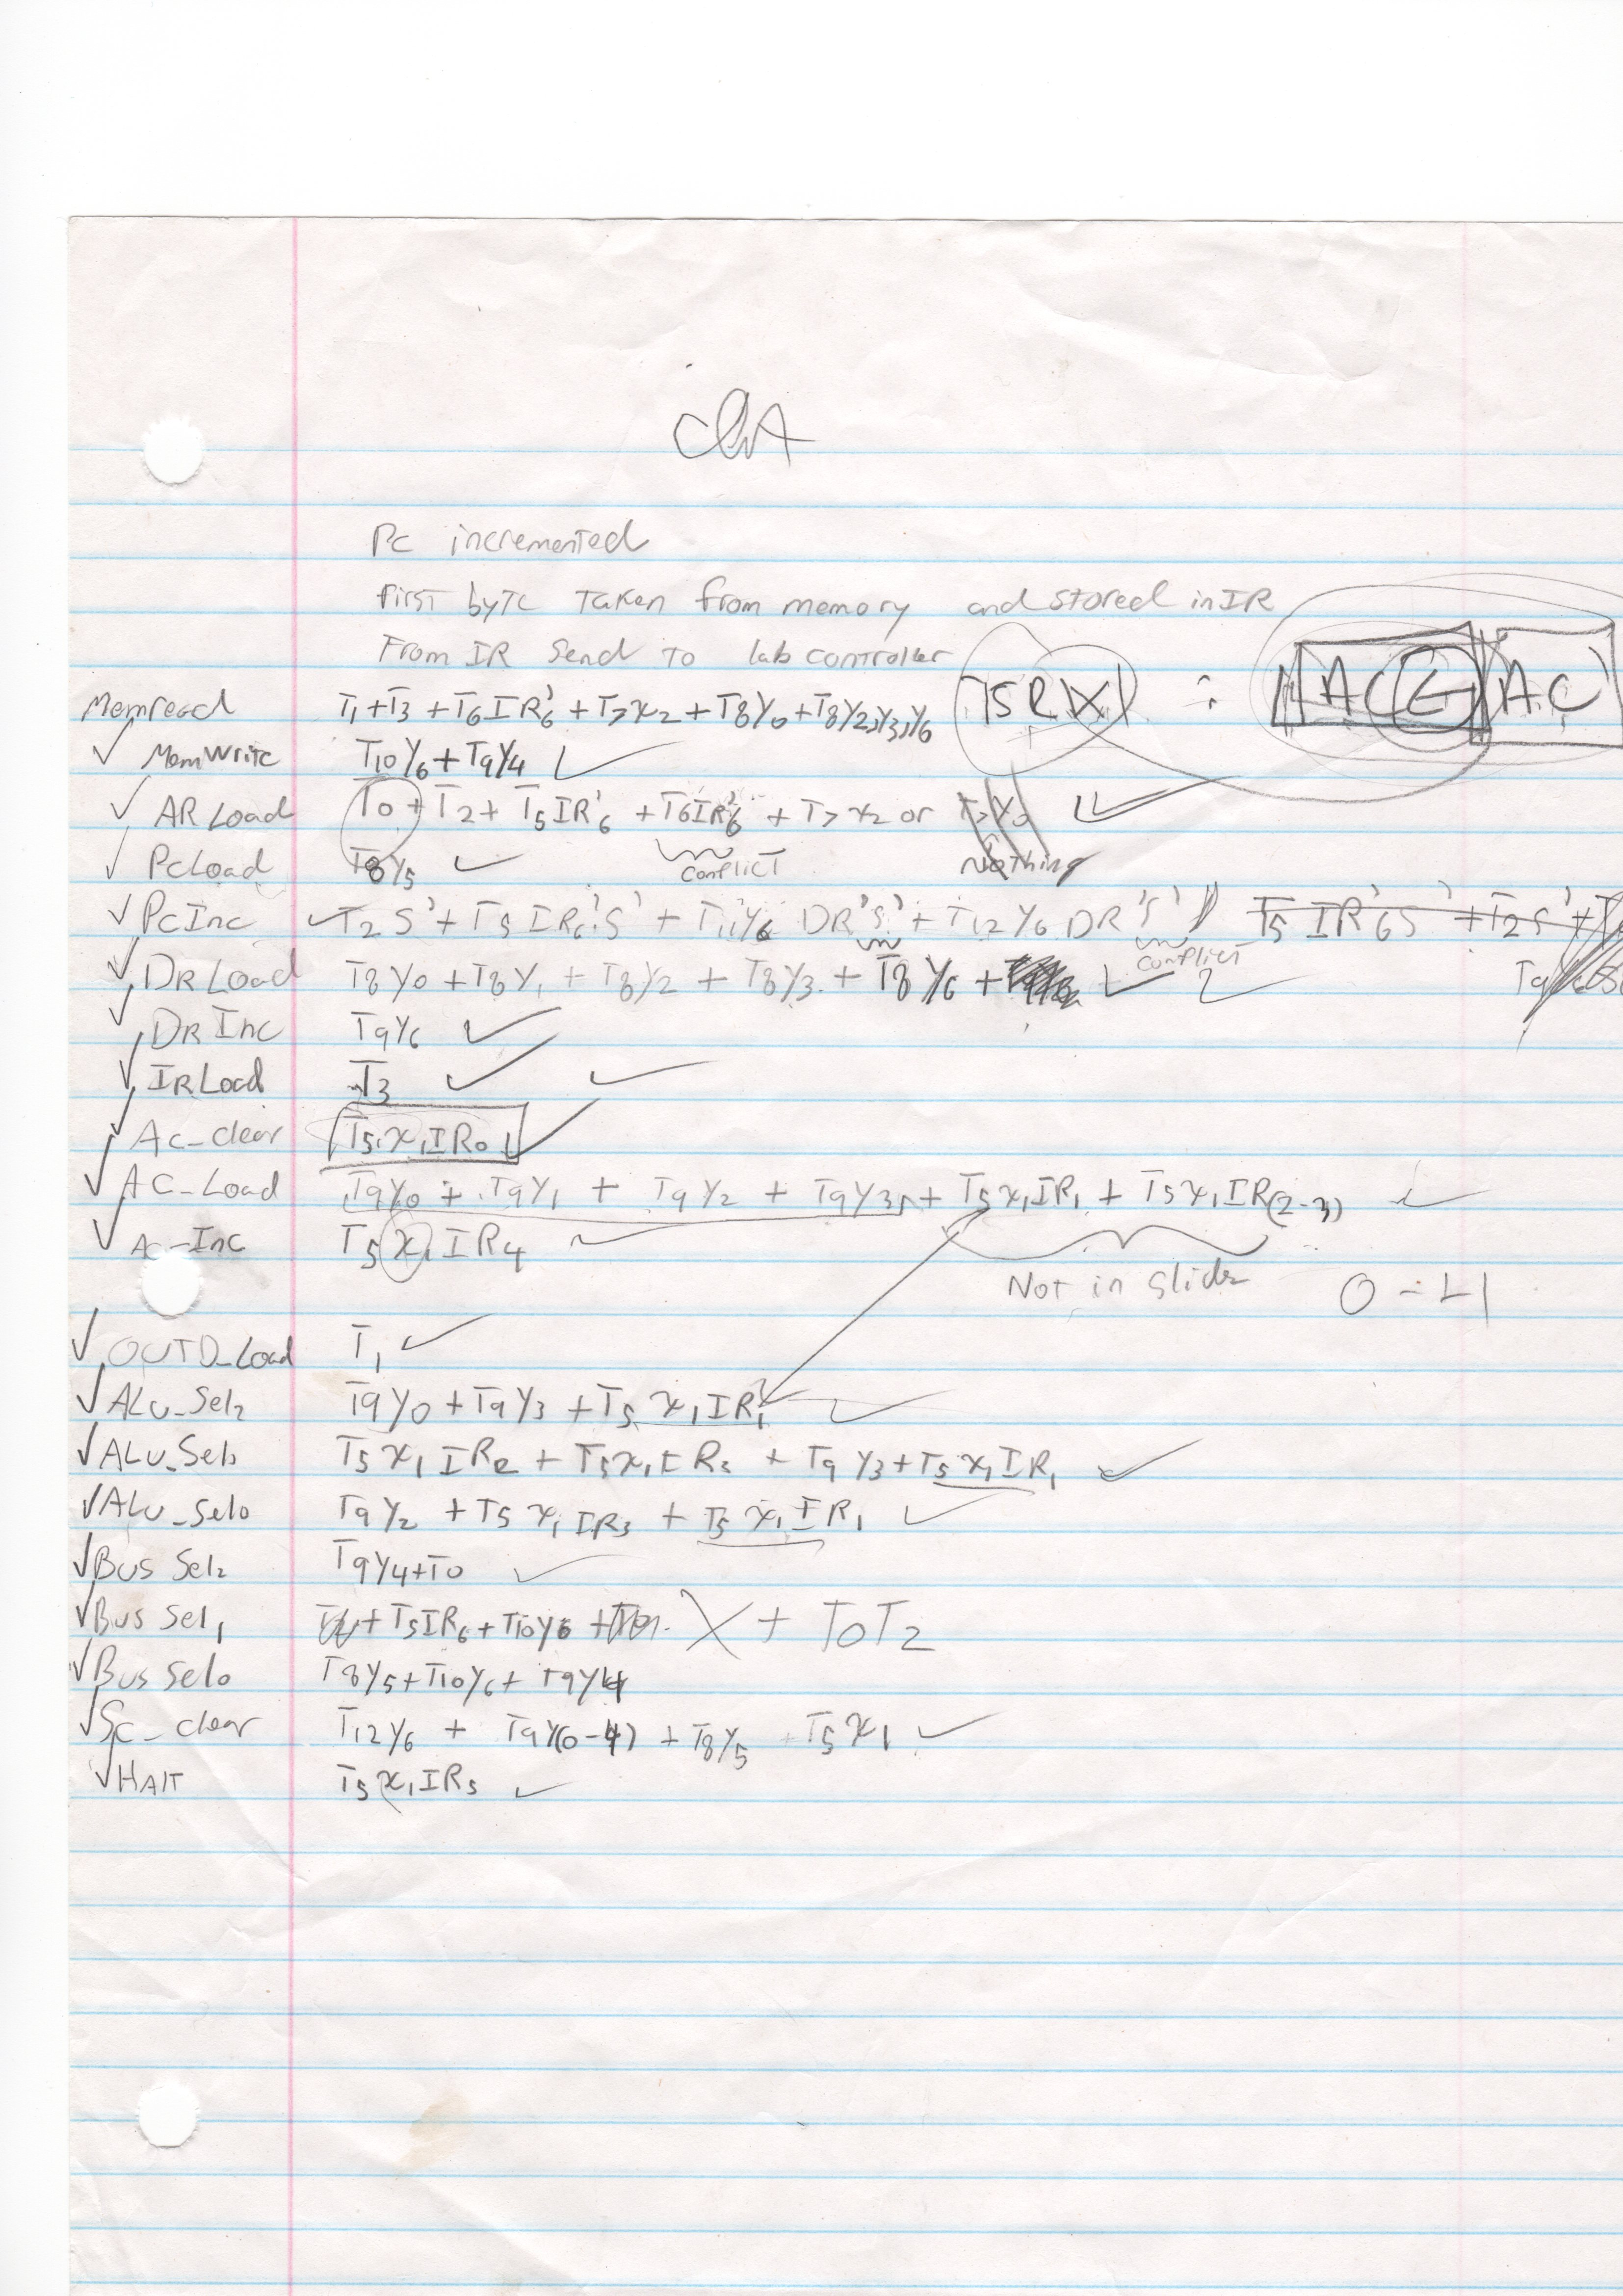 Pc incremented
first byte Taken from memory and stored in IR
From IR Send To lab controller
Memread T1+T3 + T6IR'6 + T7x2 + T8Y0 + T8Y2,Y3,Y6 T5R : AC AC
✓ MemWrite T10Y6 + T9Y4 ✓
✓ AR Load T0 + T2 + T5IR'6 + T6IR'6 + T7x2 or ✓
✓ PcLoad T8Y5 ✓ conflict Nothing
✓ PcInc ✓ T2S' + T5IR6'S' + T11Y6 DR'S' + T12Y6 DR'S' T5IR'6S' + T2S' +
conflict
✓ DR Load T8Y0 + T8Y1 + T8Y2 + T8Y3 + T8Y6 + ✓ T9
✓ DR Inc T9Y6 ✓
✓ IR Load T3 ✓ ✓
✓ Ac_clear T5x1IR0 ✓
✓ AC_Load T9Y0 + T9Y1 + T9Y2 + T9Y3 + T5x1IR1 + T5x1IR(2-3) ✓
✓ Ac_Inc T5x1IR4 ✓
Not in slide
✓ OUTD_Load T1 ✓
✓ ALU_Sel2 T9Y0 + T9Y3 + T5x1IR1 ✓
✓ ALU_Sel1 T5x1IR2 + T5x1IR3 + T9Y3 + T5x1IR1 ✓
✓ ALU_Sel0 T9Y2 + T5x1IR3 + T5x1IR1 ✓
✓ Bus Sel2 T9Y4+T0 ✓
✓ Bus Sel1 + T5IR6 + T10Y6 + X + T0T2
✓ Bus Sel0 T8Y5 + T10Y6 + T9Y4
✓ Sc_clear T12Y6 + T9Y(0-4) + T8Y5 + T5x1 ✓
✓ HALT T5x1IR5 ✓